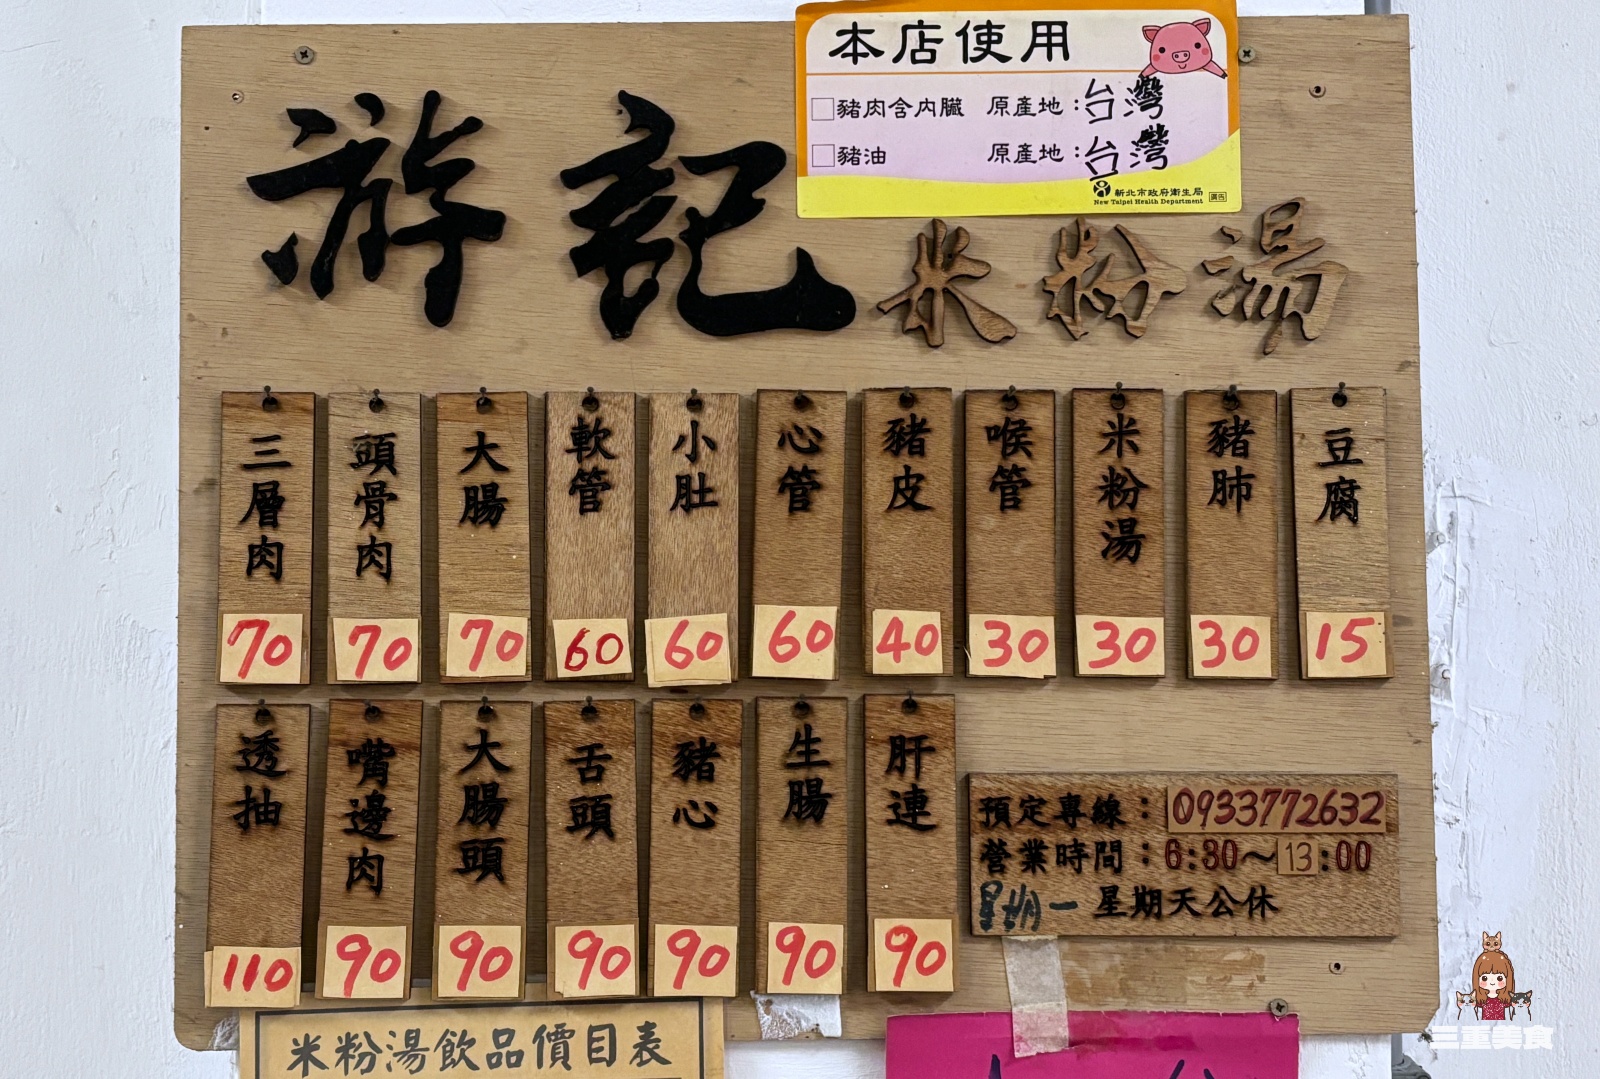 本店使用
豬肉含內臟 原產地：台灣
豬油 原產地：台灣
新北市政府衛生局 廣告
New Taipei Health Department
游記 米粉湯
三層肉 70
頭骨肉 70
大腸 70
軟管 60
小肚 60
心管 60
豬皮 40
喉管 30
米粉湯 30
豬肺 30
豆腐 15
透抽 110
嘴邊肉 90
大腸頭 90
舌頭 90
豬心 90
生腸 90
肝連 90
預定專線：0933772632
營業時間：6:30～13:00
星期一 星期天公休
米粉湯飲品價目表
三重美食